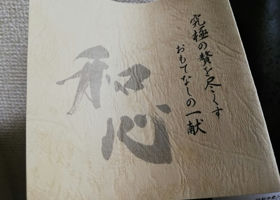 究極の贅を尽くす
おもてなしの一献
和心